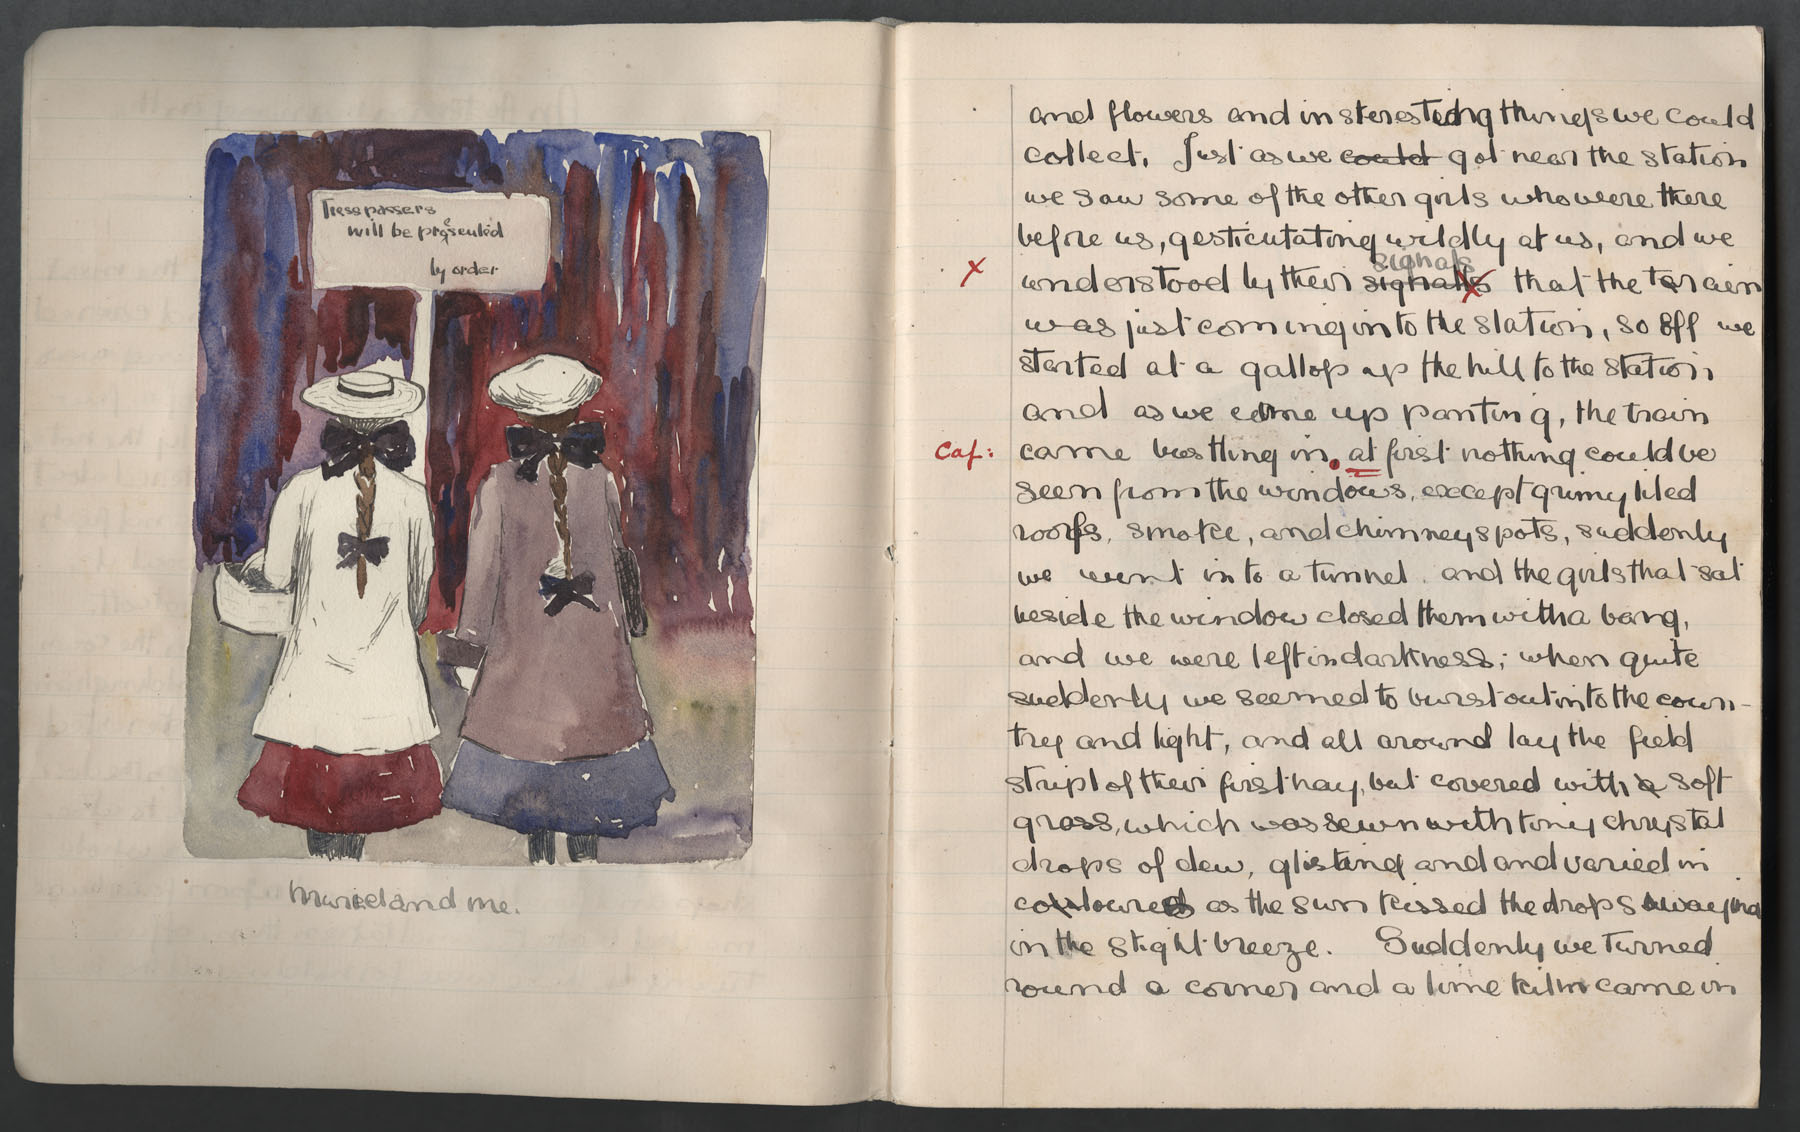 Tresspassers
will be prosecuted
by order
Muriel and me.
and flowers and interesting things we could
collect. Just as we could got near the station
we saw some of the other girls who were there
before us, gesticutating wildly at us, and we
signals
x understood by their signalls that the train
was just coming into the station, so off we
started at a gallop up the hill to the station
and as we came up panting, the train
Cap: came bustling in. at first nothing could be
seen from the windows, except grimy tiled
roofs, smoke, and chimneyspots, suddenly
we went into a tunnel and the girls that sat
beside the window closed them with a bang,
and we were left in darkness; when quite
suddenly we seemed to burst out into the coun-
try and light, and all around lay the field
stript of their first hay, but covered with a soft
grass, which was sewn with tiny chrystal
drops of dew, glisting and and varied in
coloured as the sun kissed the drops swaying
in the slight breeze. Suddenly we turned
round a corner and a lime kiln came in